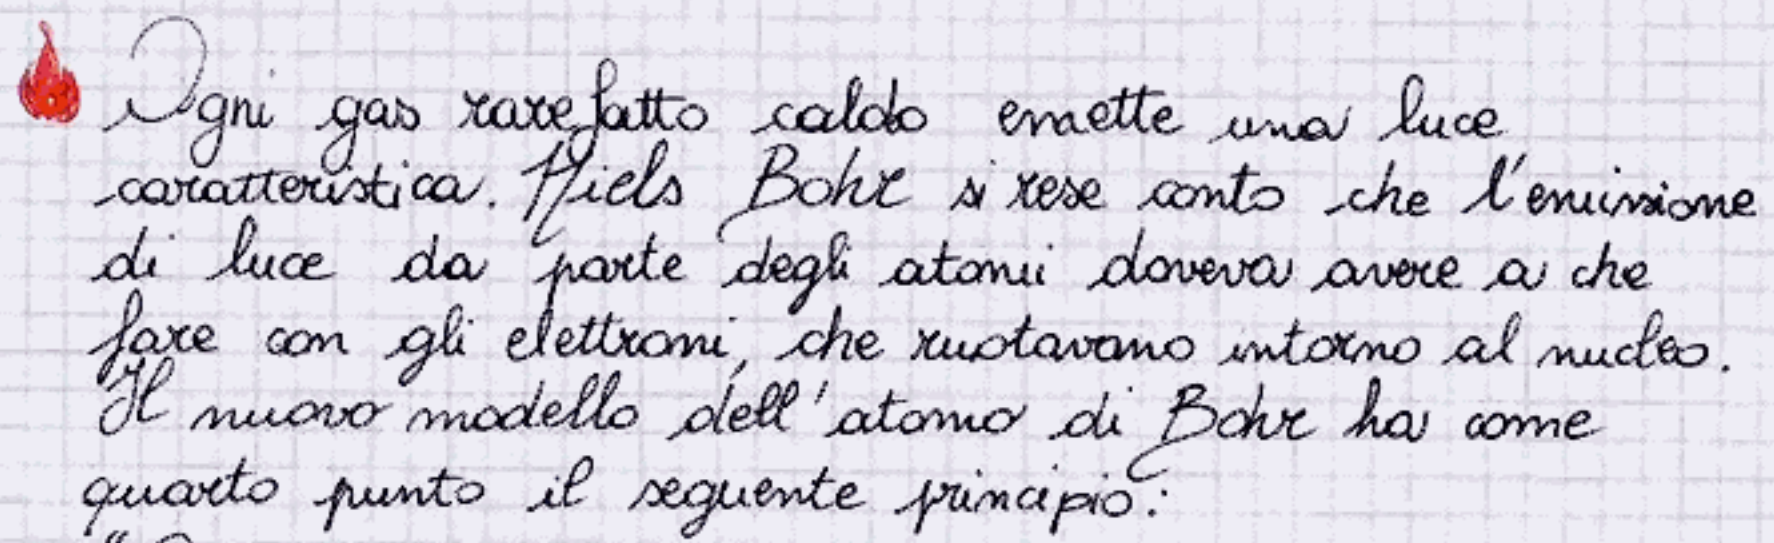 Ogni gas rarefatto caldo emette una luce
caratteristica. Niels Bohr si rese conto che l'emissione
di luce da parte degli atomi doveva avere a che
fare con gli elettroni, che ruotavano intorno al nucleo.
Il nuovo modello dell'atomo di Bohr ha come
quarto punto il seguente principio: